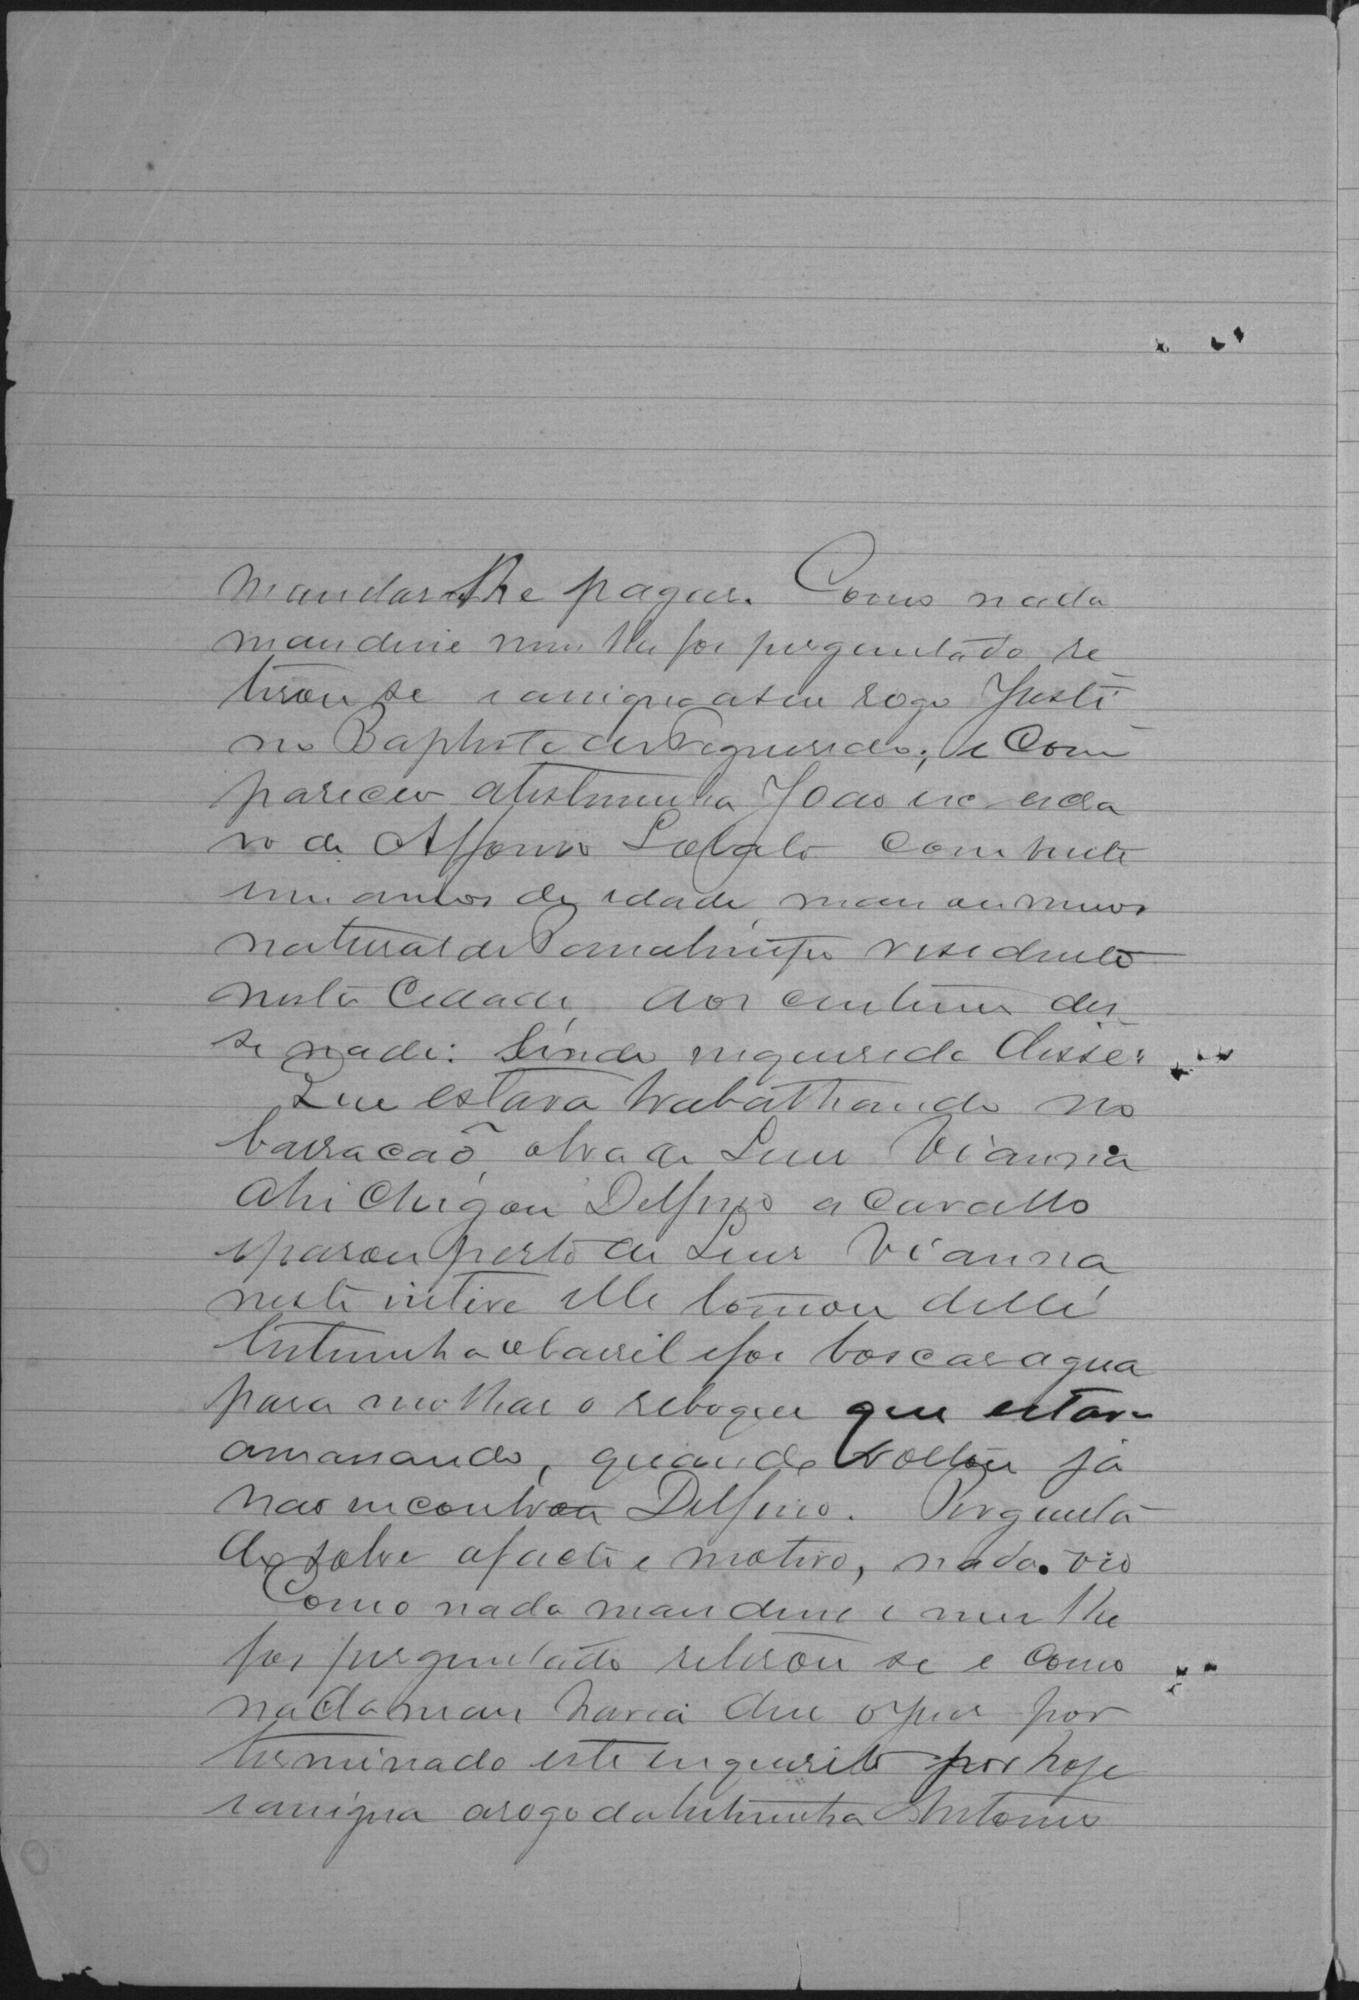 mandar-lhe pagar. Como nada
mais disse nem lhe foi perguntado re
tirou se e assigna a seu rogo Justi
no Baptista de Figueiredo; e Com
pareceu a testemunha João escra
vo de Affonso Lobato com vinte
um annos de idade mais ou menos
natural de residente
nesta Cidade, aos custumes dis
se nada: Sendo inquerido disse:
Que estava trabalhando no
barracaõ, obra de Luis Vianna
ahi chegou Delfino a cavallo
e parou perto de Luis Vianna
neste elle tomou delle
testemunha o barril e foi boscar agua
para molhar o reboque que estava
amassando, quando voltou já
nao encontrou Delfino. Pergunta
do sobre o facto e motivo, nada vio
Como nada mais disse e nem lhe
foi perguntado retirou se e como
nada mais havia deu o Juis por
terminado este enquerito por hoje
e assigna a rogo da testemunha Antonio